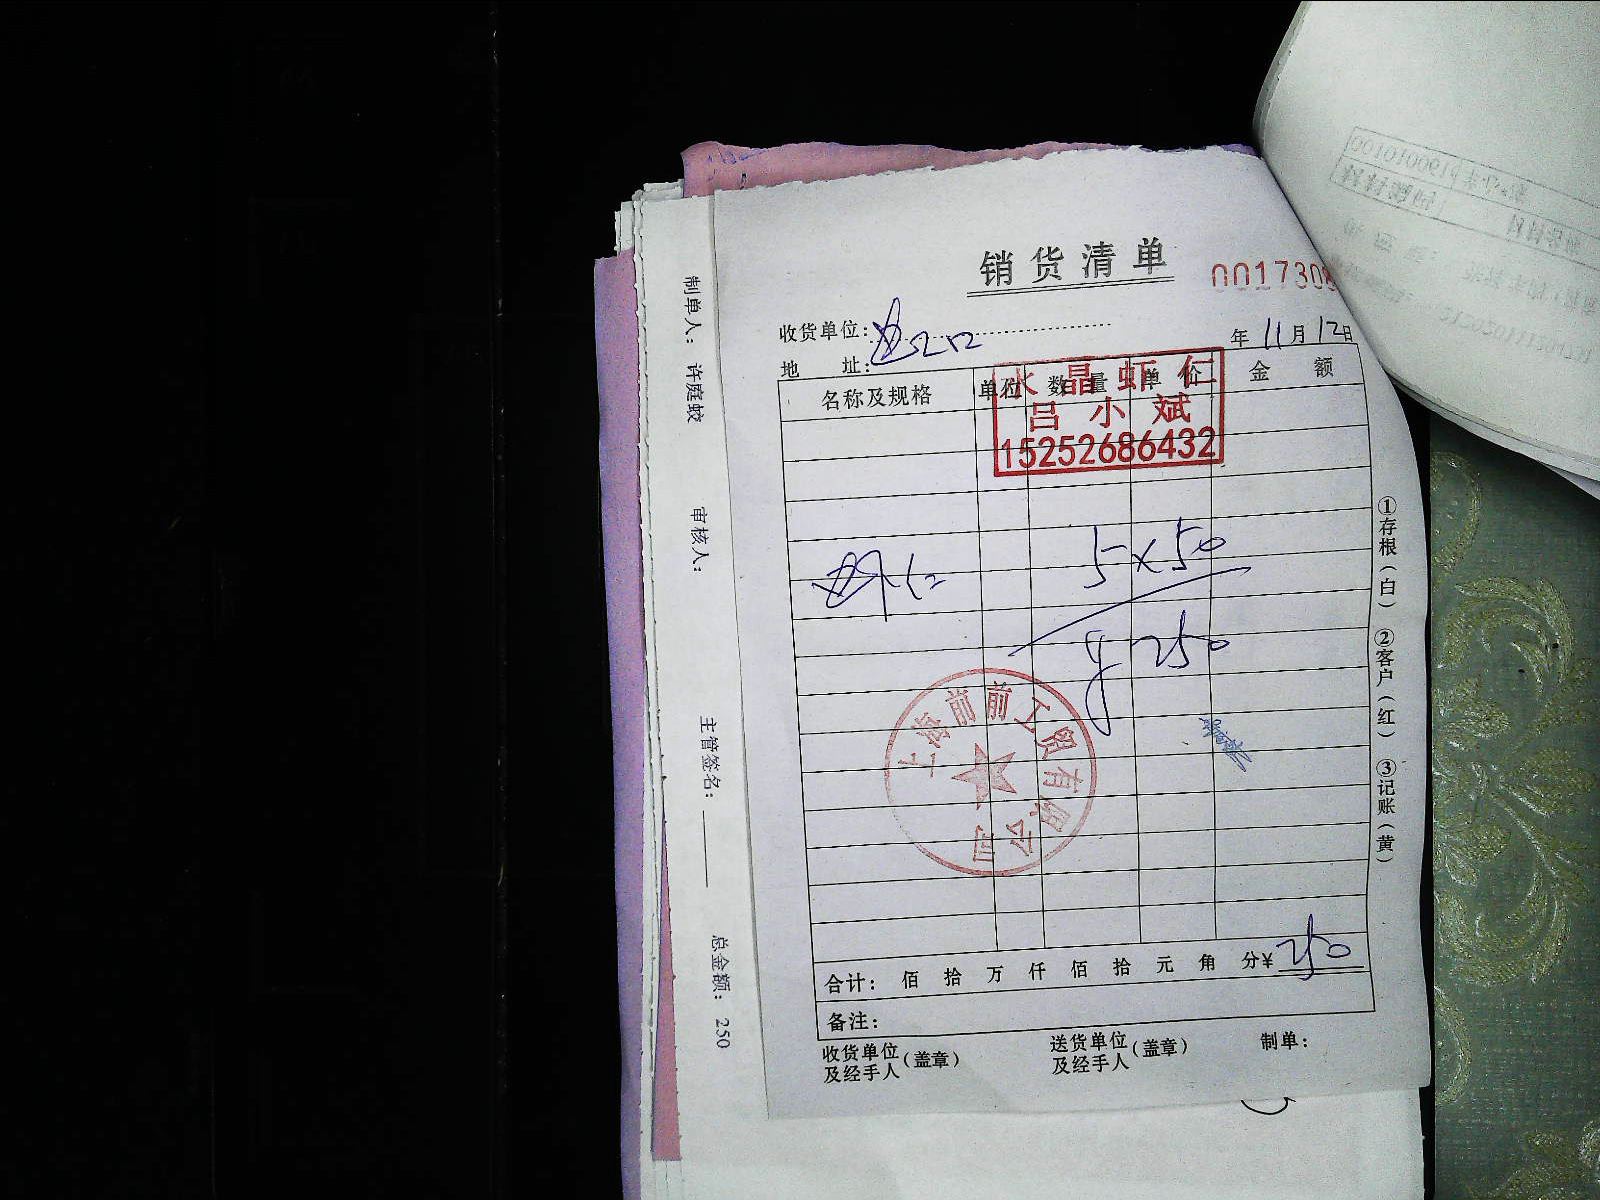 销货清单
001730
收货单位:
年 11月12日
地 址:
名称及规格 单位 数量 单价 金额
水晶虾仁
吕小斌
15252686432
虾仁 5×50
250
上海前前工贸有限公司
合计: 佰 拾 万 仟 佰 拾 元 角 分¥ 250
备注:
收货单位及经手人(盖章) 送货单位及经手人(盖章) 制单:
①存根(白) ②客户(红) ③记账(黄)
制单人: 许庭蛟 审核人: 主管签名: 总金额: 250